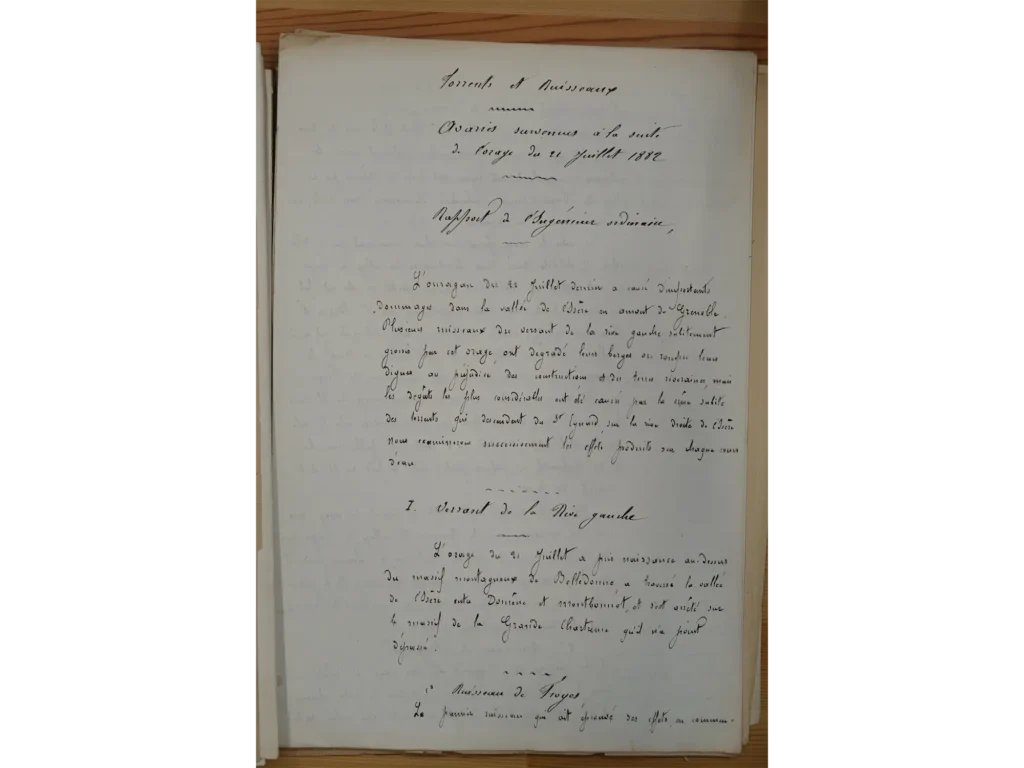 Torrents et Ruisseaux
Avaries survenues à la suite
de l'orage du 21 Juillet 1882
Rapport de l'Ingénieur ordinaire,
L'ouragan du 21 Juillet dernier a causé d'importants
dommages dans la vallée de l'Isère en amont de Grenoble.
Plusieurs ruisseaux du versant de la rive gauche subitement
grossis par cet orage ont dégradé leurs berges ou rompu leurs
digues au préjudice des constructions et des terres riveraines, mais
les dégâts les plus considérables ont été causés par la crue subite
des torrents qui descendent du St Eynard, sur la rive droite de l'Isère
Nous examinerons successivement les effets produits sur chaque cours
d'eau
I. Versant de la Rive gauche
L'orage du 21 Juillet a pris naissance au-dessus
du massif montagneux de Belledonne, a traversé la vallée
de l'Isère entre Domène et Montbonnot, et s'est arrêté sur
le massif de la Grande Chartreuse qu'il n'a point
dépassé.
1° Ruisseau de Froges
Le premier ruisseau qui ait éprouvé ses effets, en commen-